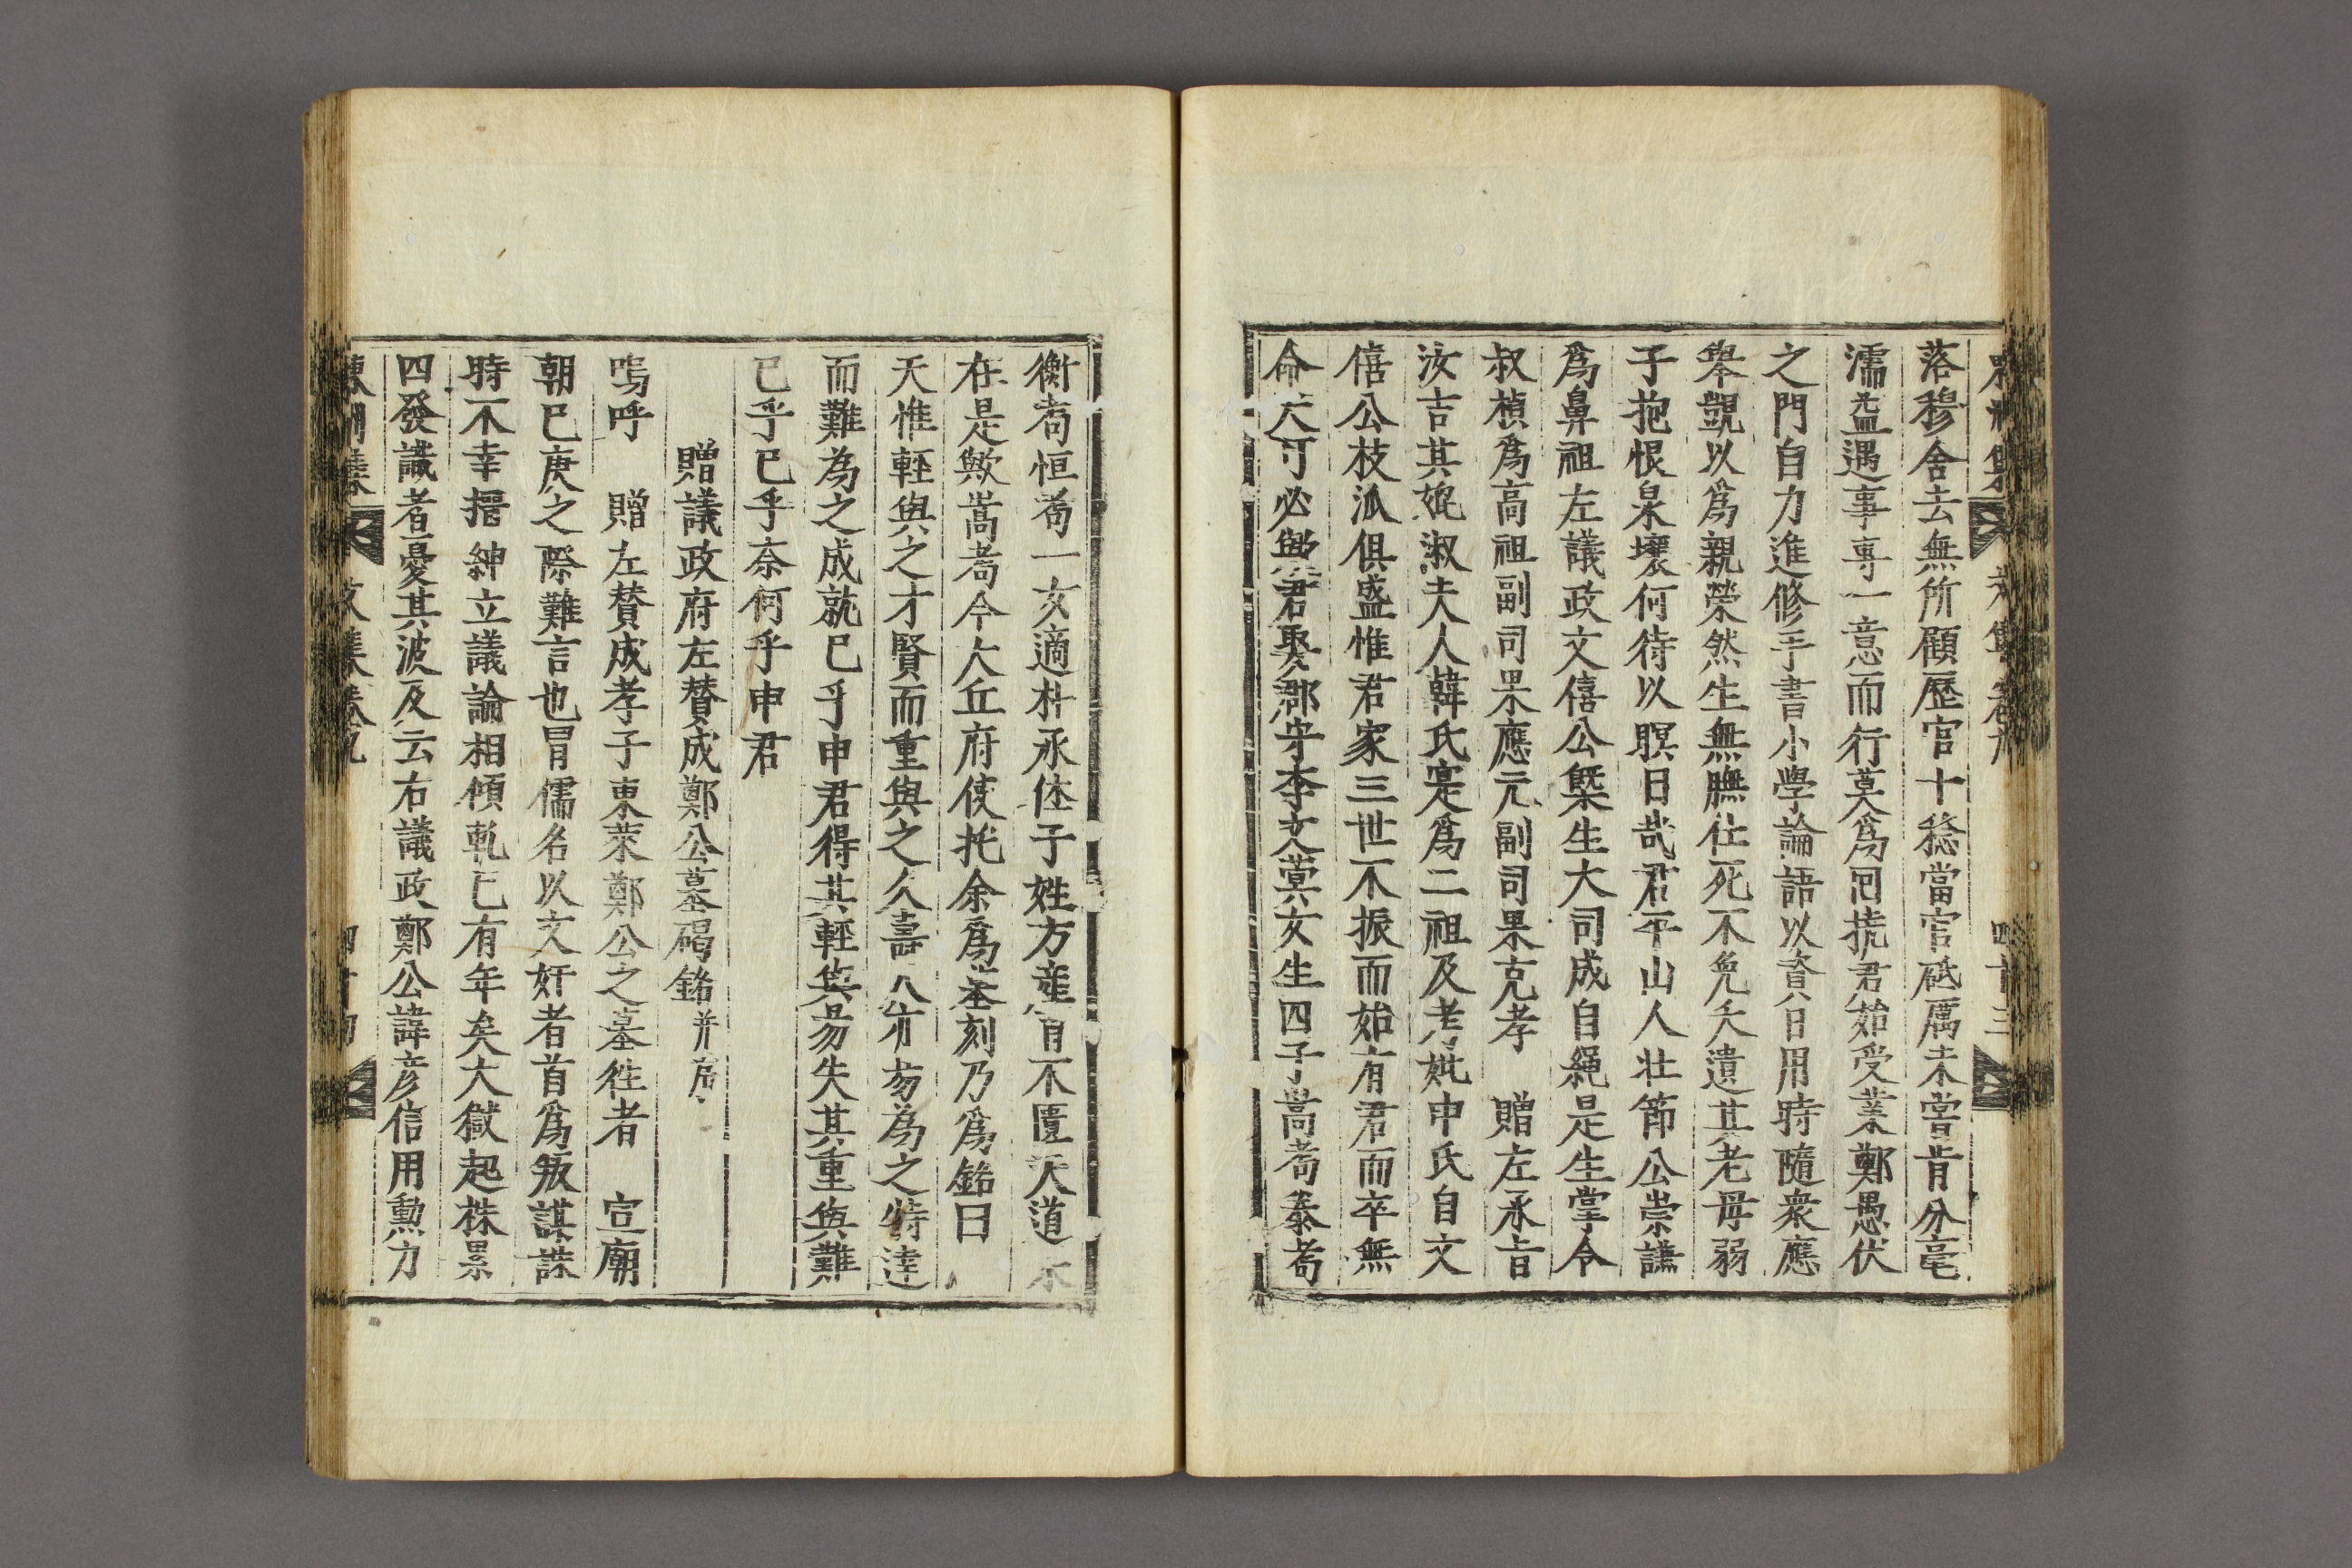 落穆舍去無所顧歷官十稔當官砥厲未嘗肯分毫
濡益遇事專一意而行莫爲回撓君始受業鄭愚伏
之門自力進修手書小學論語以資日用時隨衆應
擧覬以爲親榮然生無膴仕死不免夭遺其老母弱
子抱恨泉壤何待以瞑目哉君平山人壯節公崇謙
爲鼻祖左議政文僖公槩生大司成自繩是生掌令
叔楨爲高祖副司果應元副司果克孝 贈左承旨
汝吉其妣淑夫人韓氏寔爲二祖及考妣申氏自文
僖公枝派俱盛惟君家三世不振而始有君而卒無
命天可必歟君娶郡守李文蓂女生四子嵩耉泰耉
衡耉恒耉一女適朴承休子姓方産育不匱天道不
在是歟嵩耉今大丘府使托余爲墓刻乃爲銘曰
天惟輕與之才賢而重與之久壽人皆易爲之特達
而難為之成就已乎申君得其輕與易失其重與難
已乎已乎奈何乎申君
贈議政府左贊成鄭公墓碣銘并序
嗚呼 贈左贊成孝子東萊鄭公之墓往者 宣廟
朝己庚之際難言也冒儒名以文奸者首爲叛謀誅
時不幸搢紳立議論相傾軋已有年矣大獄起株累
四發識者憂其波及云右議政鄭公諱彦信用勲力
東州集 文集卷九 四十四